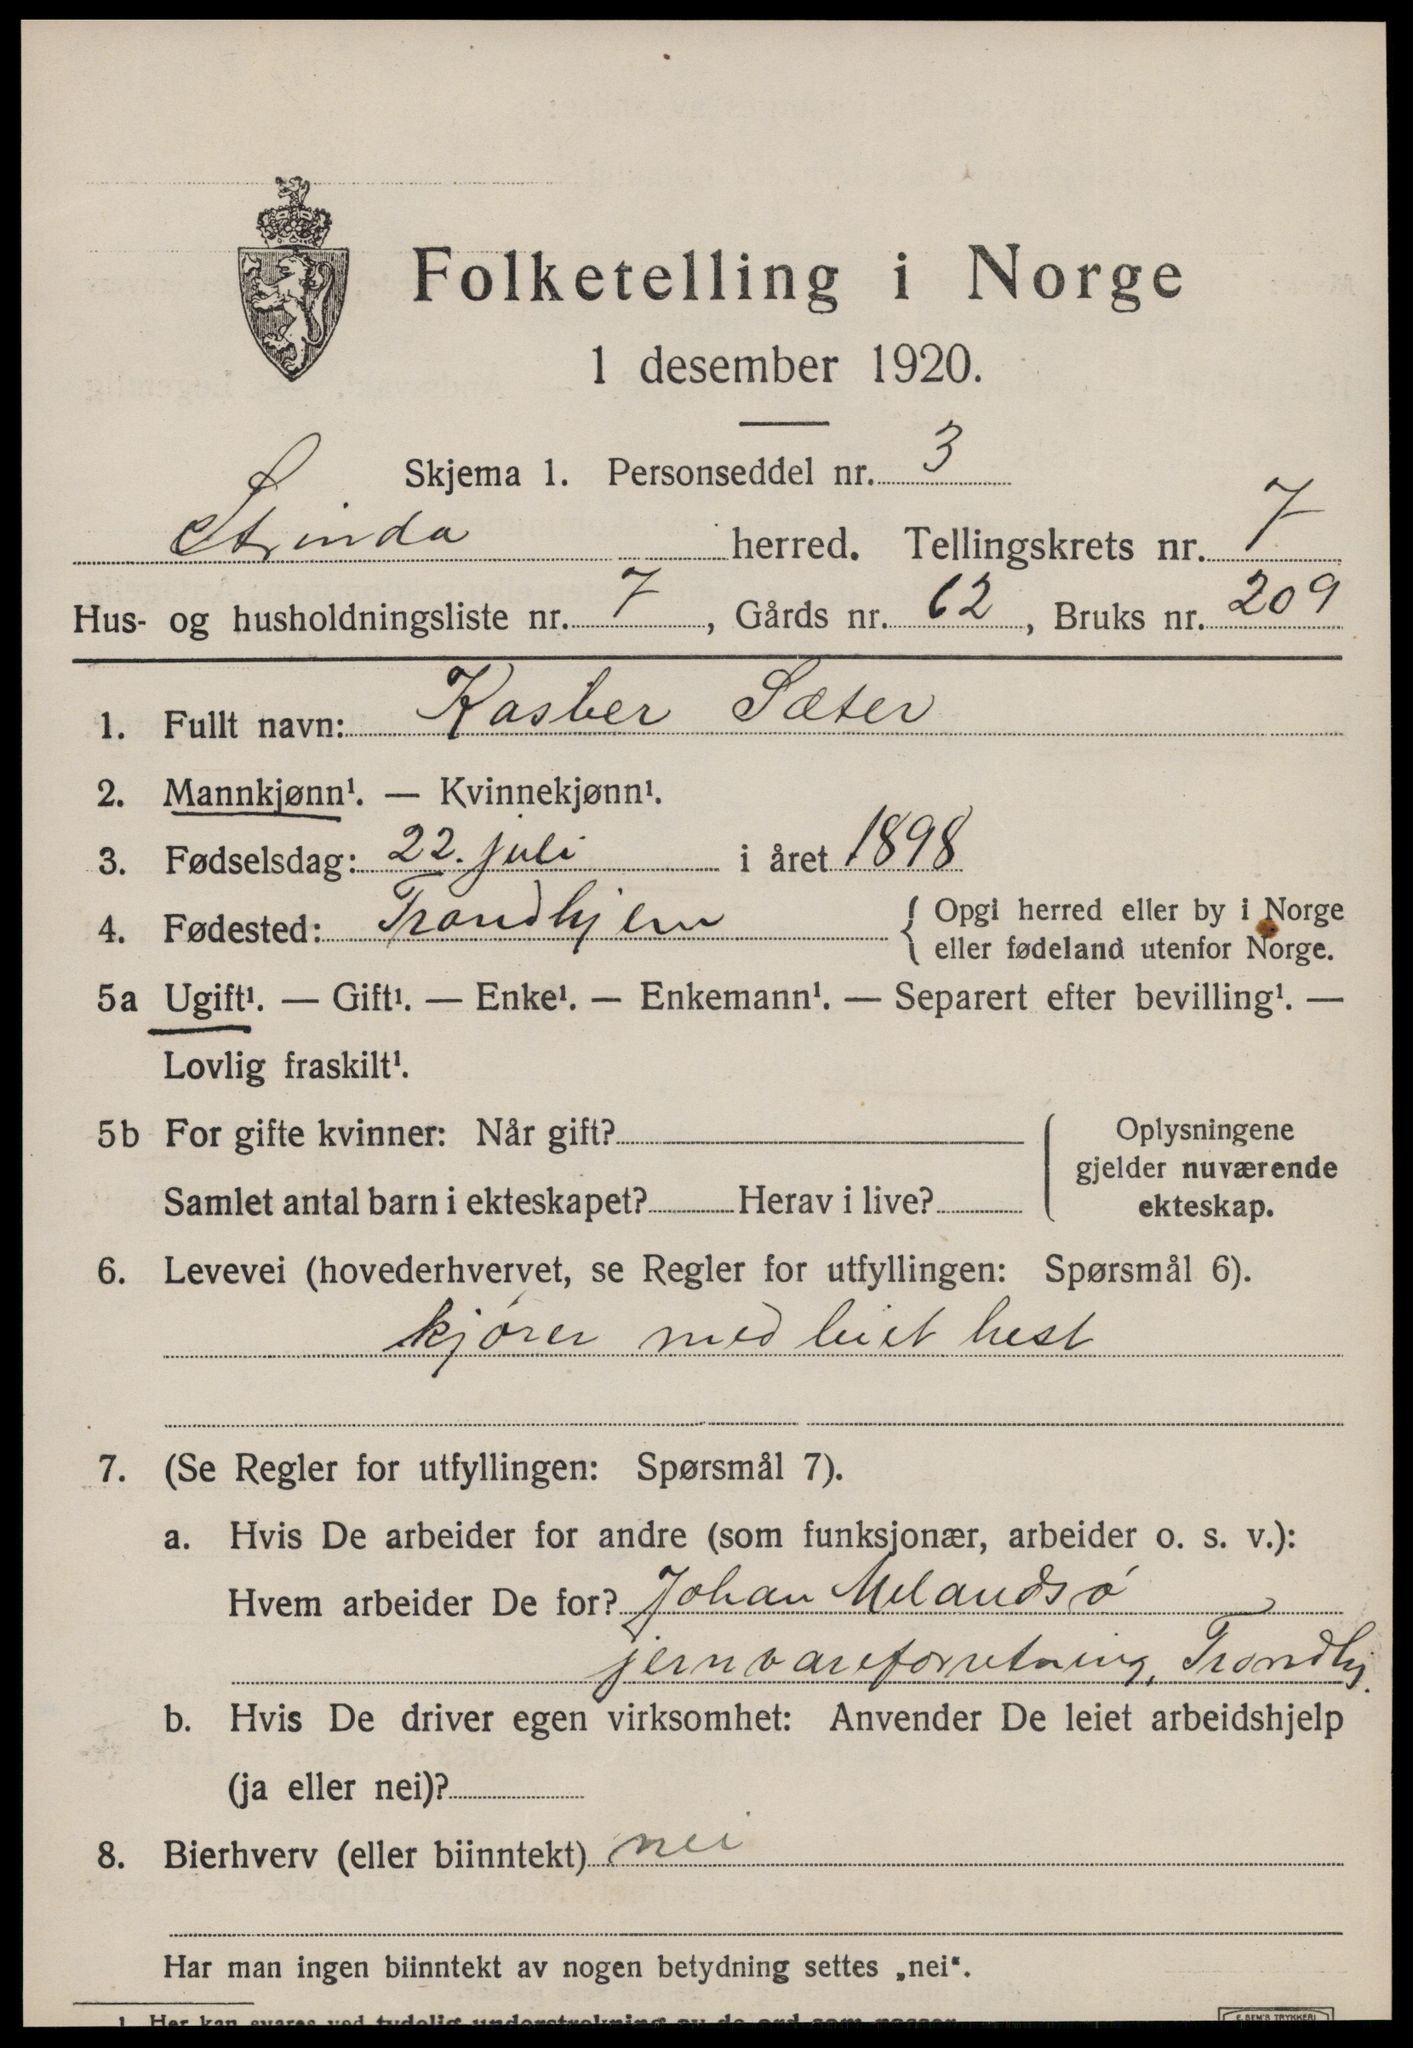 Folketelling i Norge
1 desember 1920.
Skjema 1. Personseddel nr. 3
Strinda herred. Tellingskrets nr. 7
Hus- og husholdningsliste nr. 7, Gårds nr. 62, Bruks nr. 209
1. Fullt navn: Kasber Sæter
2. Mannkjønn¹. — Kvinnekjønn¹.
3. Fødselsdag: 22. juli i året 1898
4. Fødested: Trondhjem { Opgi herred eller by i Norge
eller fødeland utenfor Norge.
5a Ugift¹. — Gift¹. — Enke¹. — Enkemann¹. — Separert efter bevilling¹. —
Lovlig fraskilt¹.
5b For gifte kvinner: Når gift? Oplysningene
gjelder nuværende
Samlet antal barn i ekteskapet? Herav i live? ekteskap.
6. Levevei (hovederhvervet, se Regler for utfyllingen: Spørsmål 6).
kjører med leiet hest
7. (Se Regler for utfyllingen: Spørsmål 7).
a. Hvis De arbeider for andre (som funksjonær, arbeider o. s. v.):
Hvem arbeider De for? Johan Melandsø
jernvareforretning, Trondhj.
b. Hvis De driver egen virksomhet: Anvender De leiet arbeidshjelp
(ja eller nei)?
8. Bierhverv (eller biinntekt) nei
Har man ingen biinntekt av nogen betydning settes „nei“.
1 Her kan svares ved tydelig understrekning av de ord som passer.